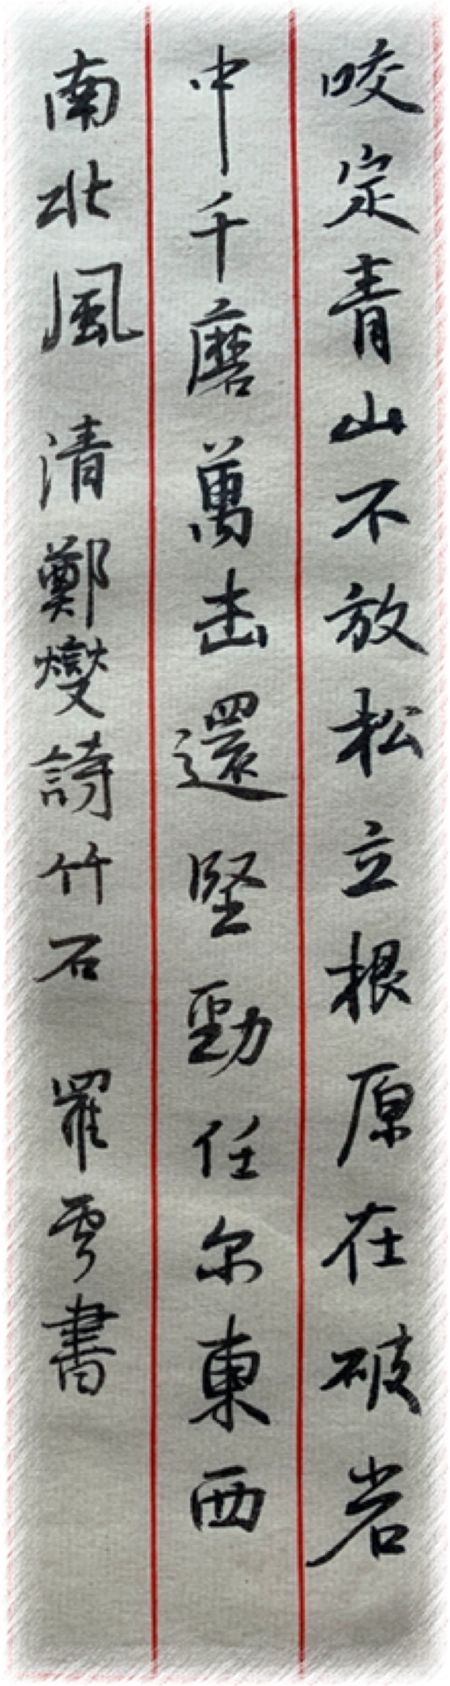 咬定青山不放松立根原在破岩
中千磨萬击還堅勁任尔東西
南北風 清鄭燮詩竹石 羅雲書